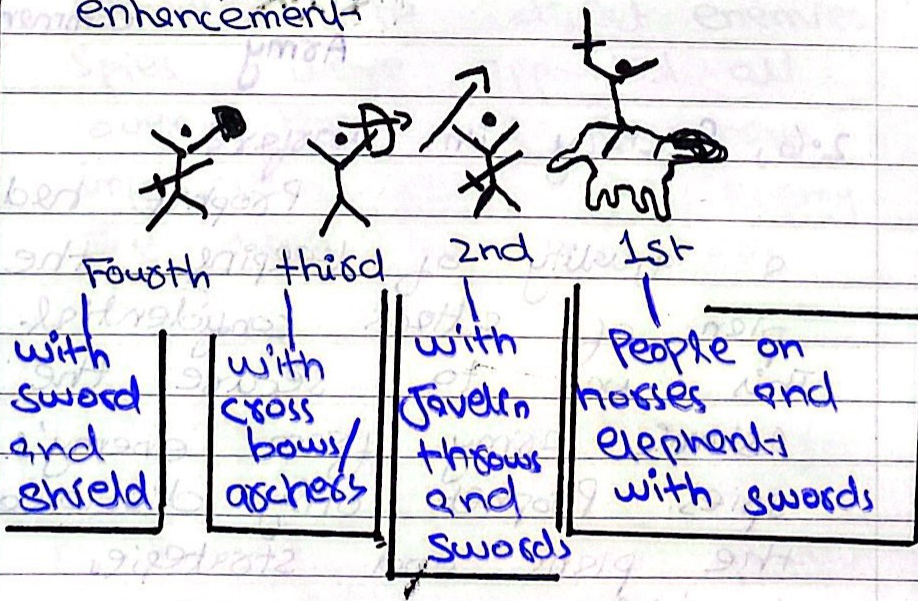 enhancement
Fourth third 2nd 1st
with
sword
and
shield
with
cross
bows/
archers
with
Javelin
throws
and
swords
People on
horses and
elephants
with swords